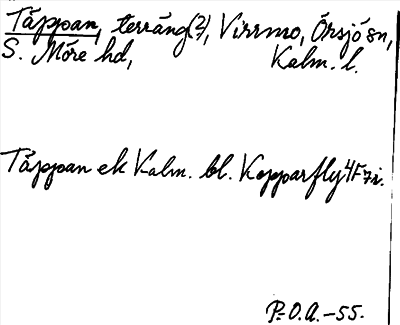 Täppan, terräng(?), Virrmo, Örsjö sn,
S. Möre hd, Kalm. l.
Täppan ek Kalm. bl. Kopparfly 4F7i.
P.O.A.-55.